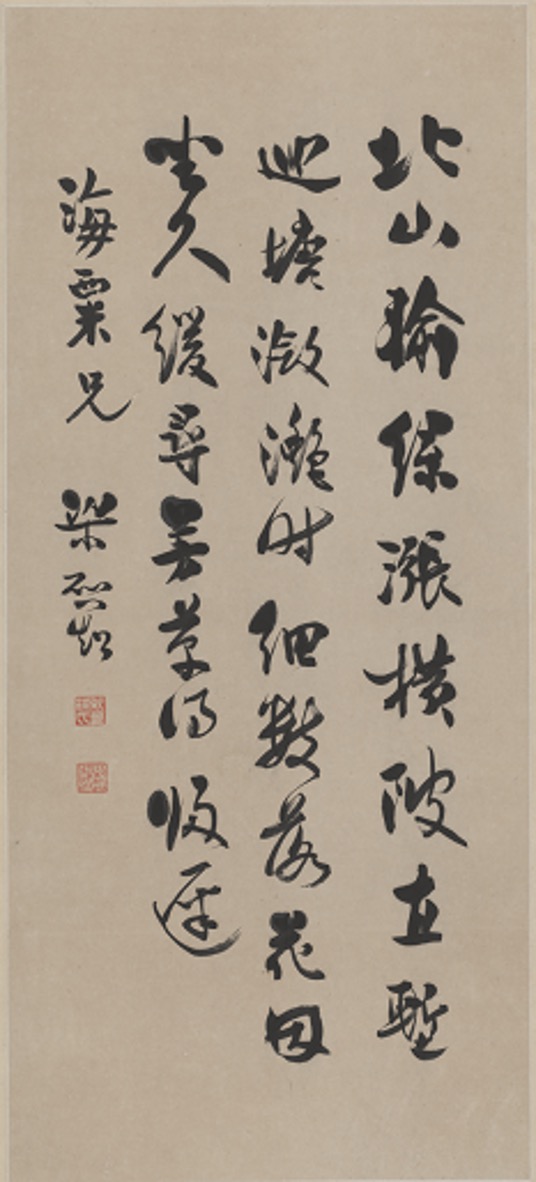 北山輸綠漲橫陂直塹
迴塘瀲灩时細數落花因
坐久緩尋芳草得歸遲
海粟兄 梁